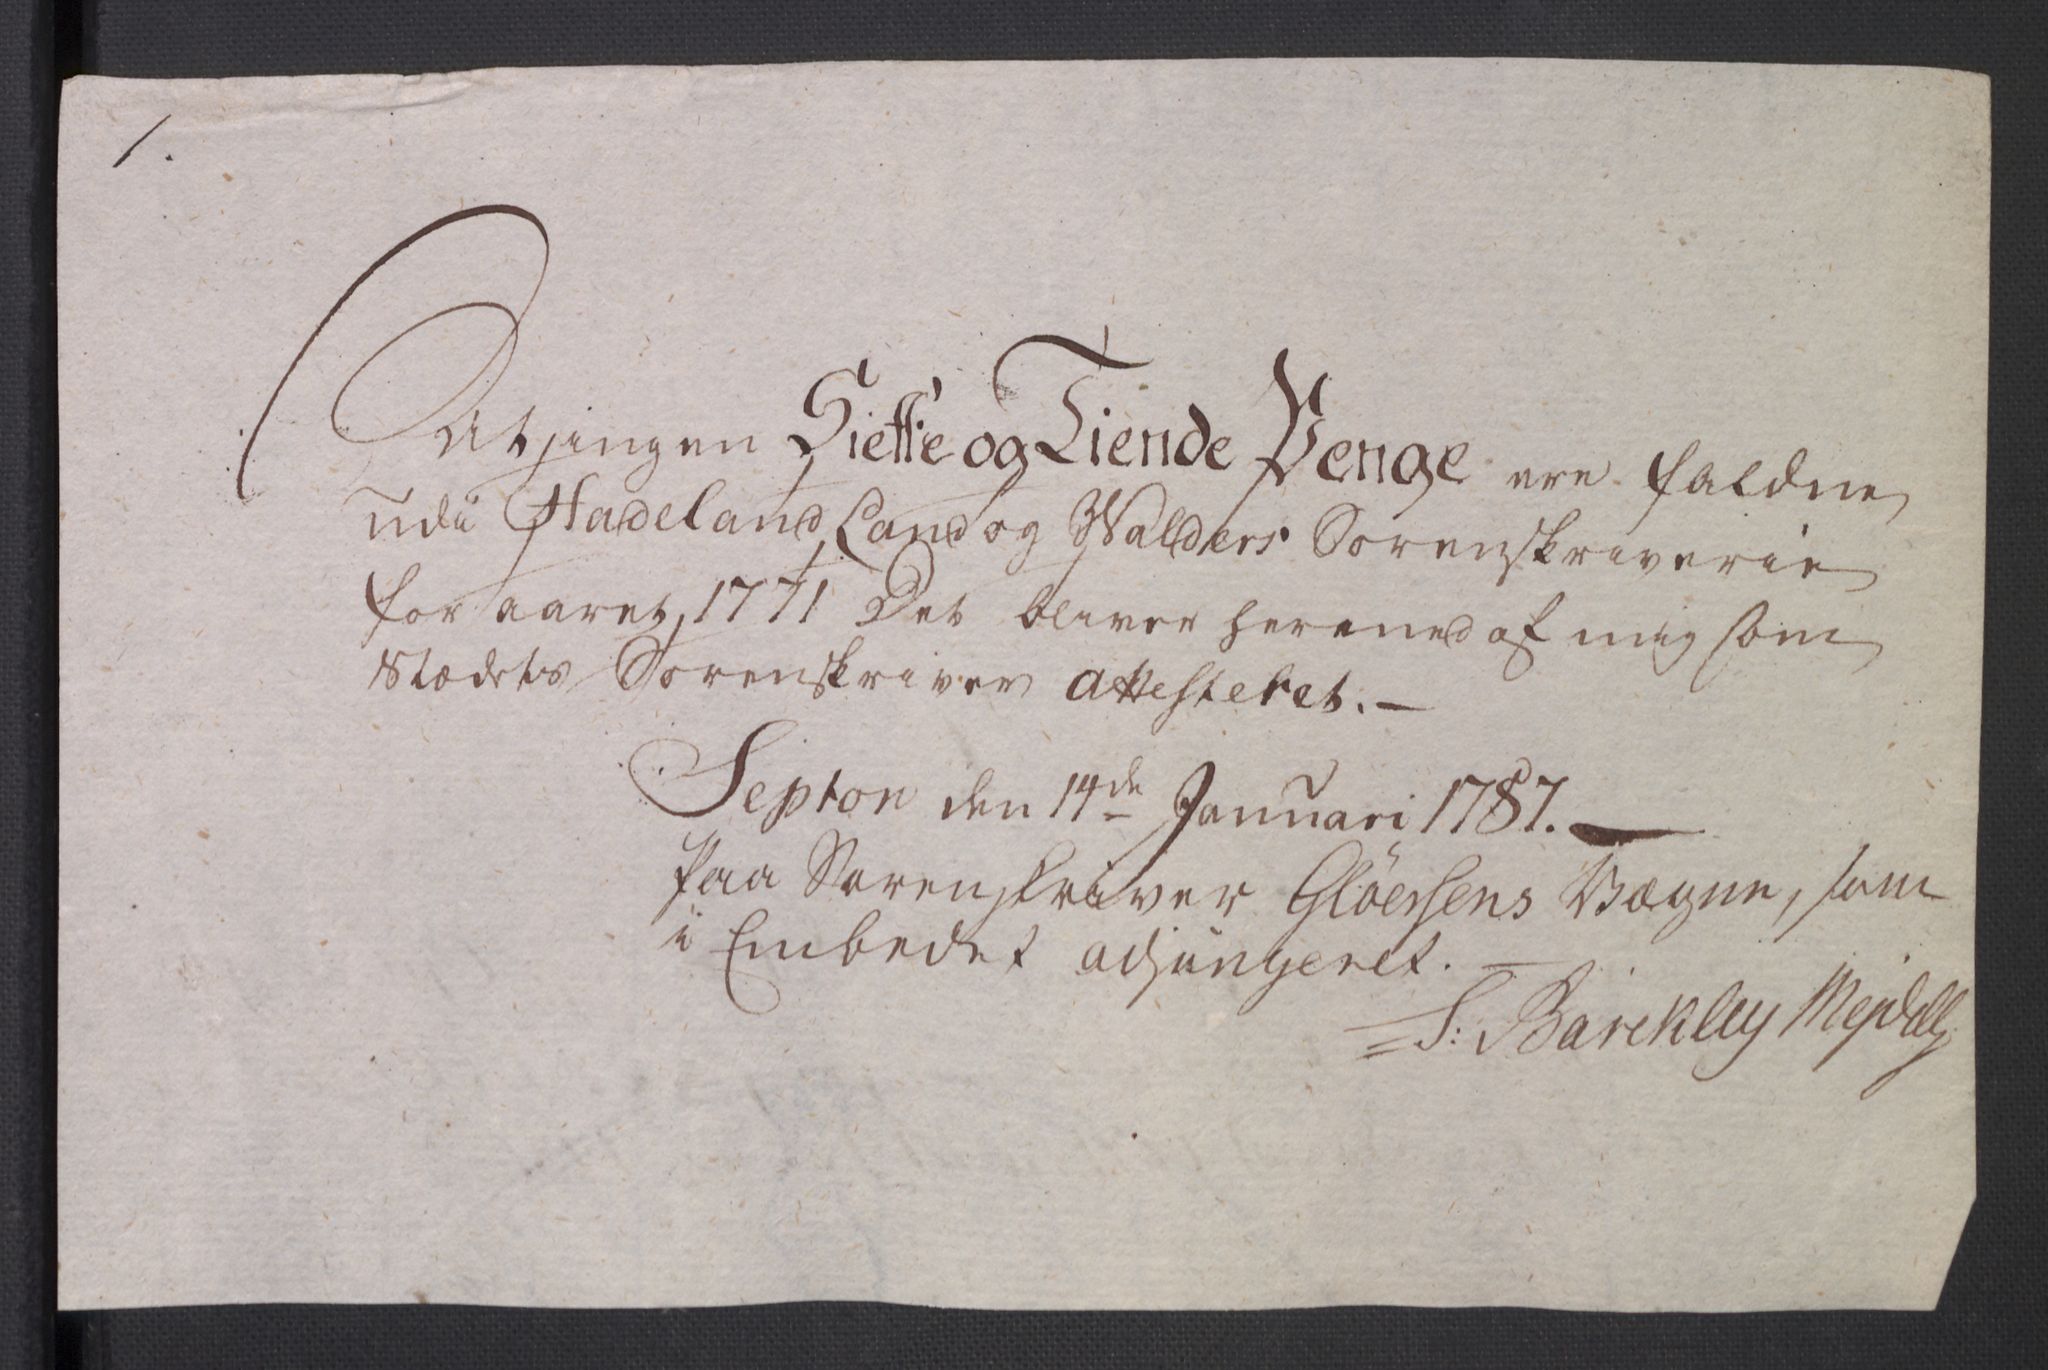 1.
At jingen Siette og Tiende Penge ere faldne
udi Hadeland, Land og Walders Sorenskriverie
for aaret 1771 Det bliver hermed af mig som
Stædets Sorenskriver attesteret. —
Septon den 14de Januari 1787. —
Paa Sorenskriver Gløersens Vægne, som
i Embedet adjungeret. —
S: Barckley Mejdell